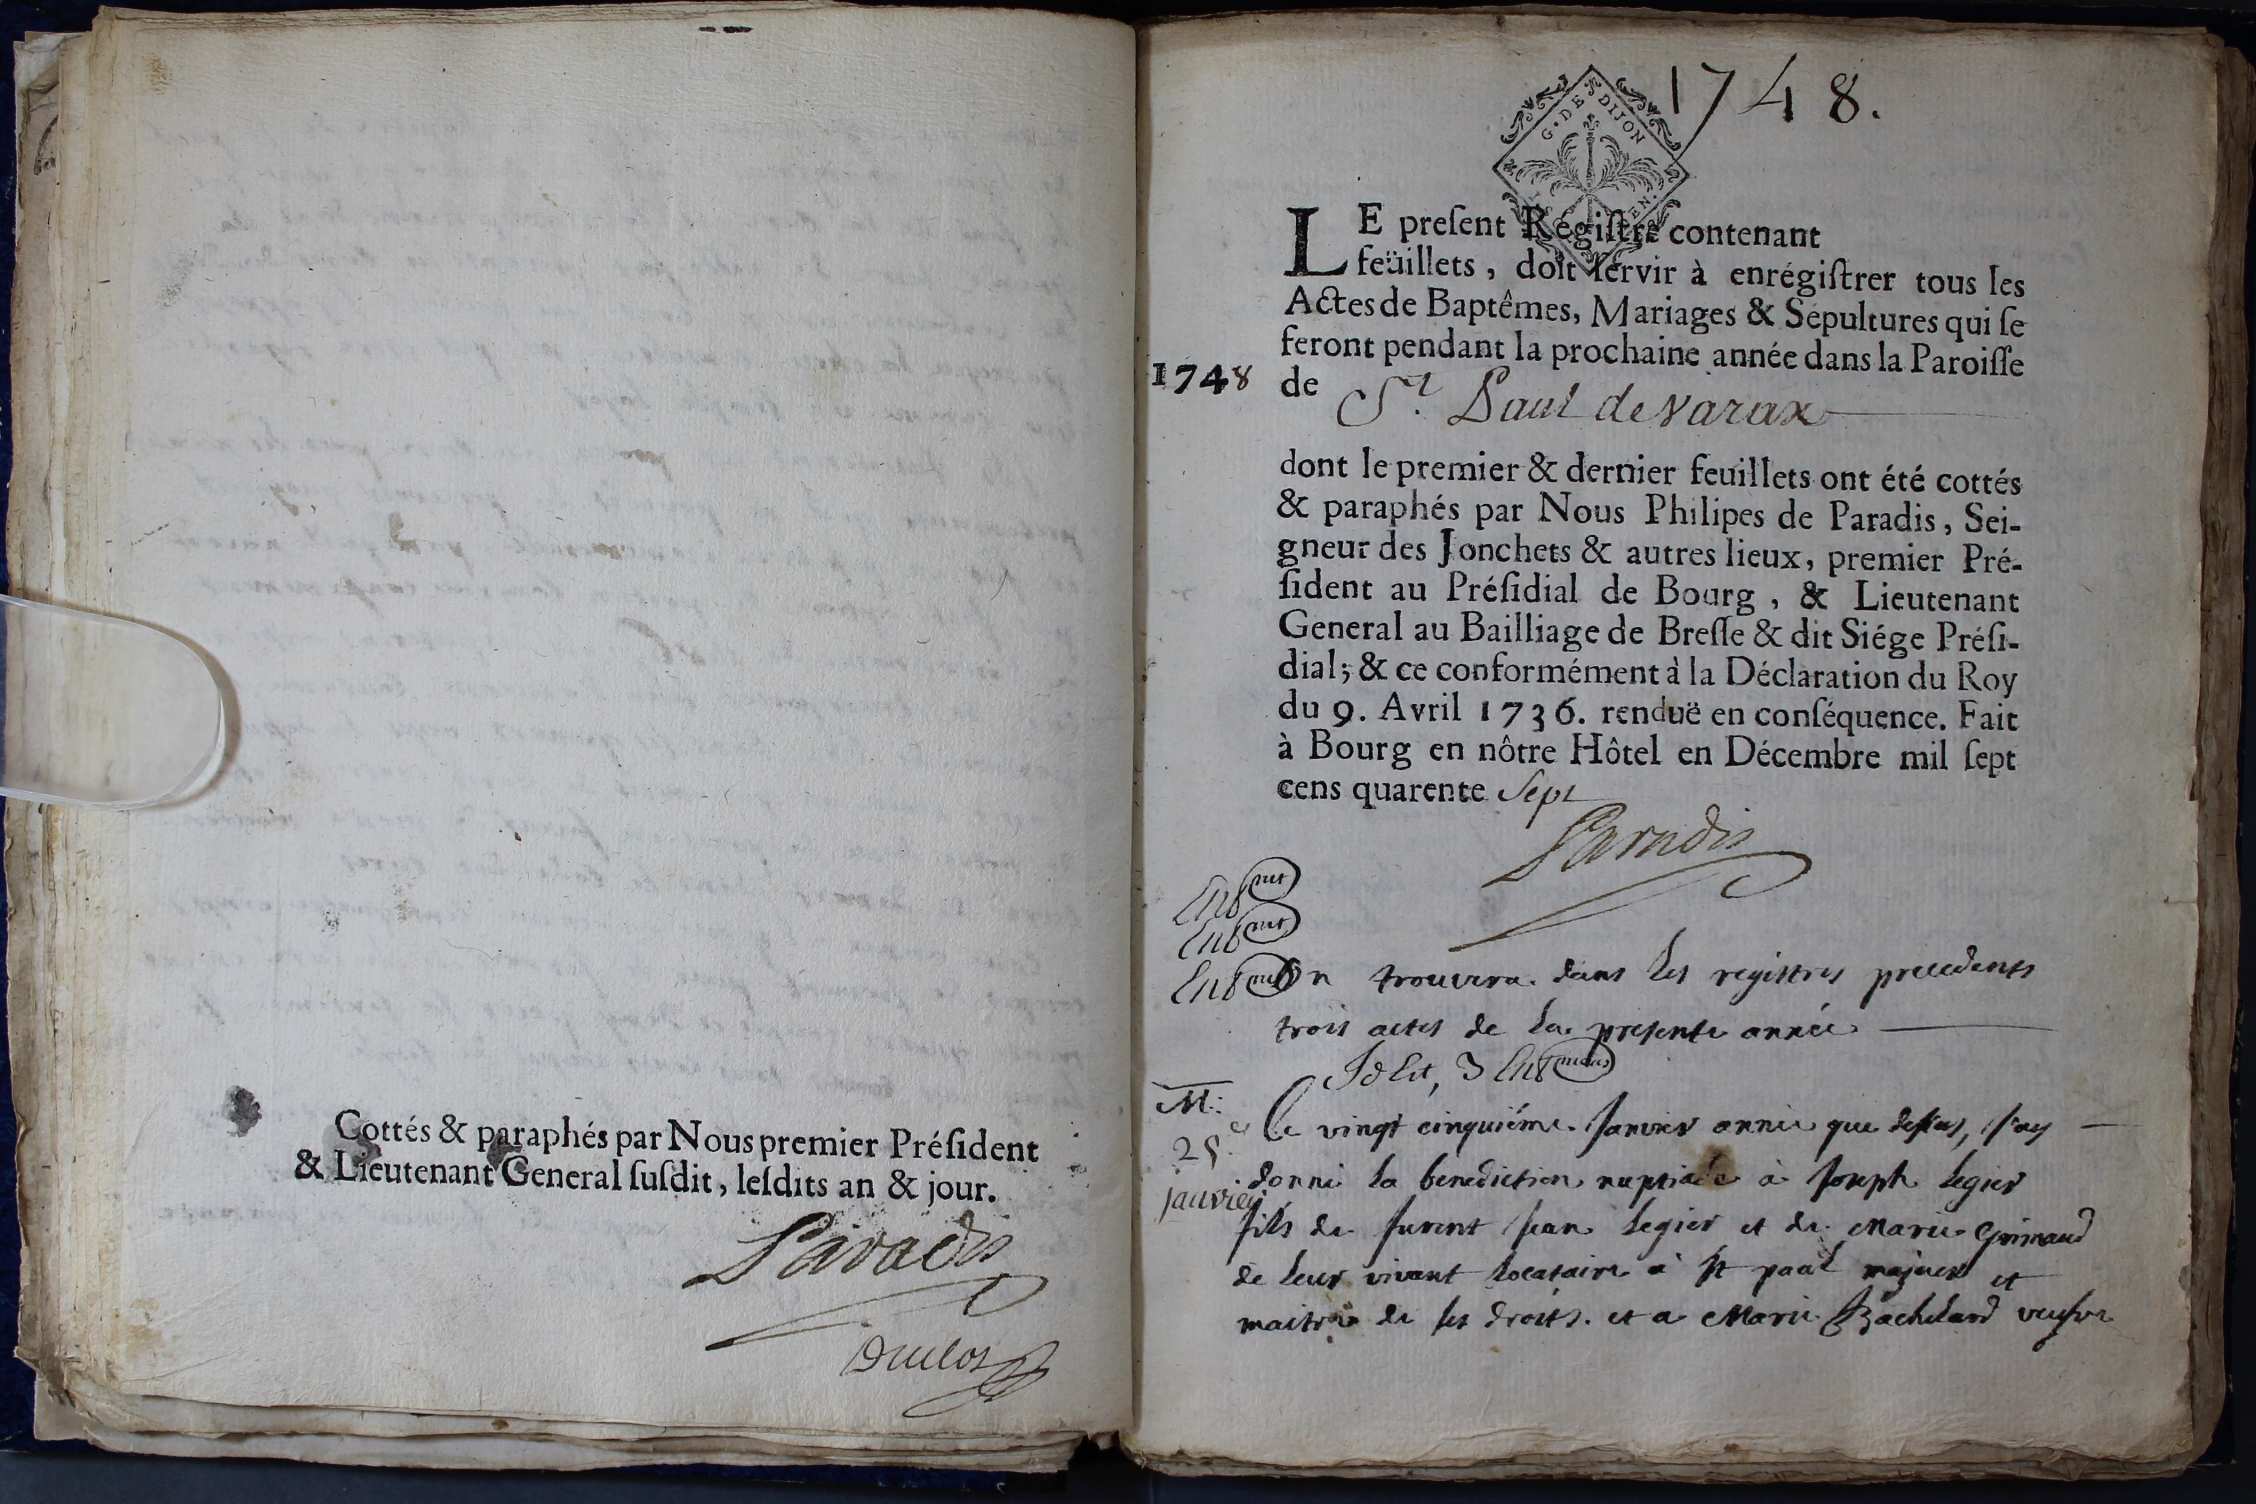 Cottés & paraphés par Nous premier Préſident
& Lieutenant General ſuſdit, leſdits an & jour.
Paradis
Duclos
1748.
G. DE DIJON
LE preſent Régiſtre contenant
feüillets, doit ſervir à enrégiſtrer tous les
Actes de Baptêmes, Mariages & Sépultures qui ſe
feront pendant la prochaine année dans la Paroiſſe
1748 de St. Paul de Varax
dont le premier & dernier feuillets ont été cottés
& paraphés par Nous Philipes de Paradis, Sei-
gneur des Jonchets & autres lieux, premier Pré-
ſident au Préſidial de Bourg, & Lieutenant
General au Bailliage de Breſſe & dit Siége Préſi-
dial; & ce conformément à la Déclaration du Roy
du 9. Avril 1736. renduë en conſéquence. Fait
à Bourg en nôtre Hôtel en Décembre mil ſept
cens quarente Sept
Paradis
On trouvera dans les registres precedents
trois actes de la presente année
M:
25
janvier
Le vingt cinquiéme Janvier année que dessus, j'ay
donné la benediction nuptiale à Joseph Legier
fils de furent Jean Legier et de Marie Grimaud
de leur vivant locataire à St paul majeur et
maitre de ses droits. et a Marie Bachelard veufve